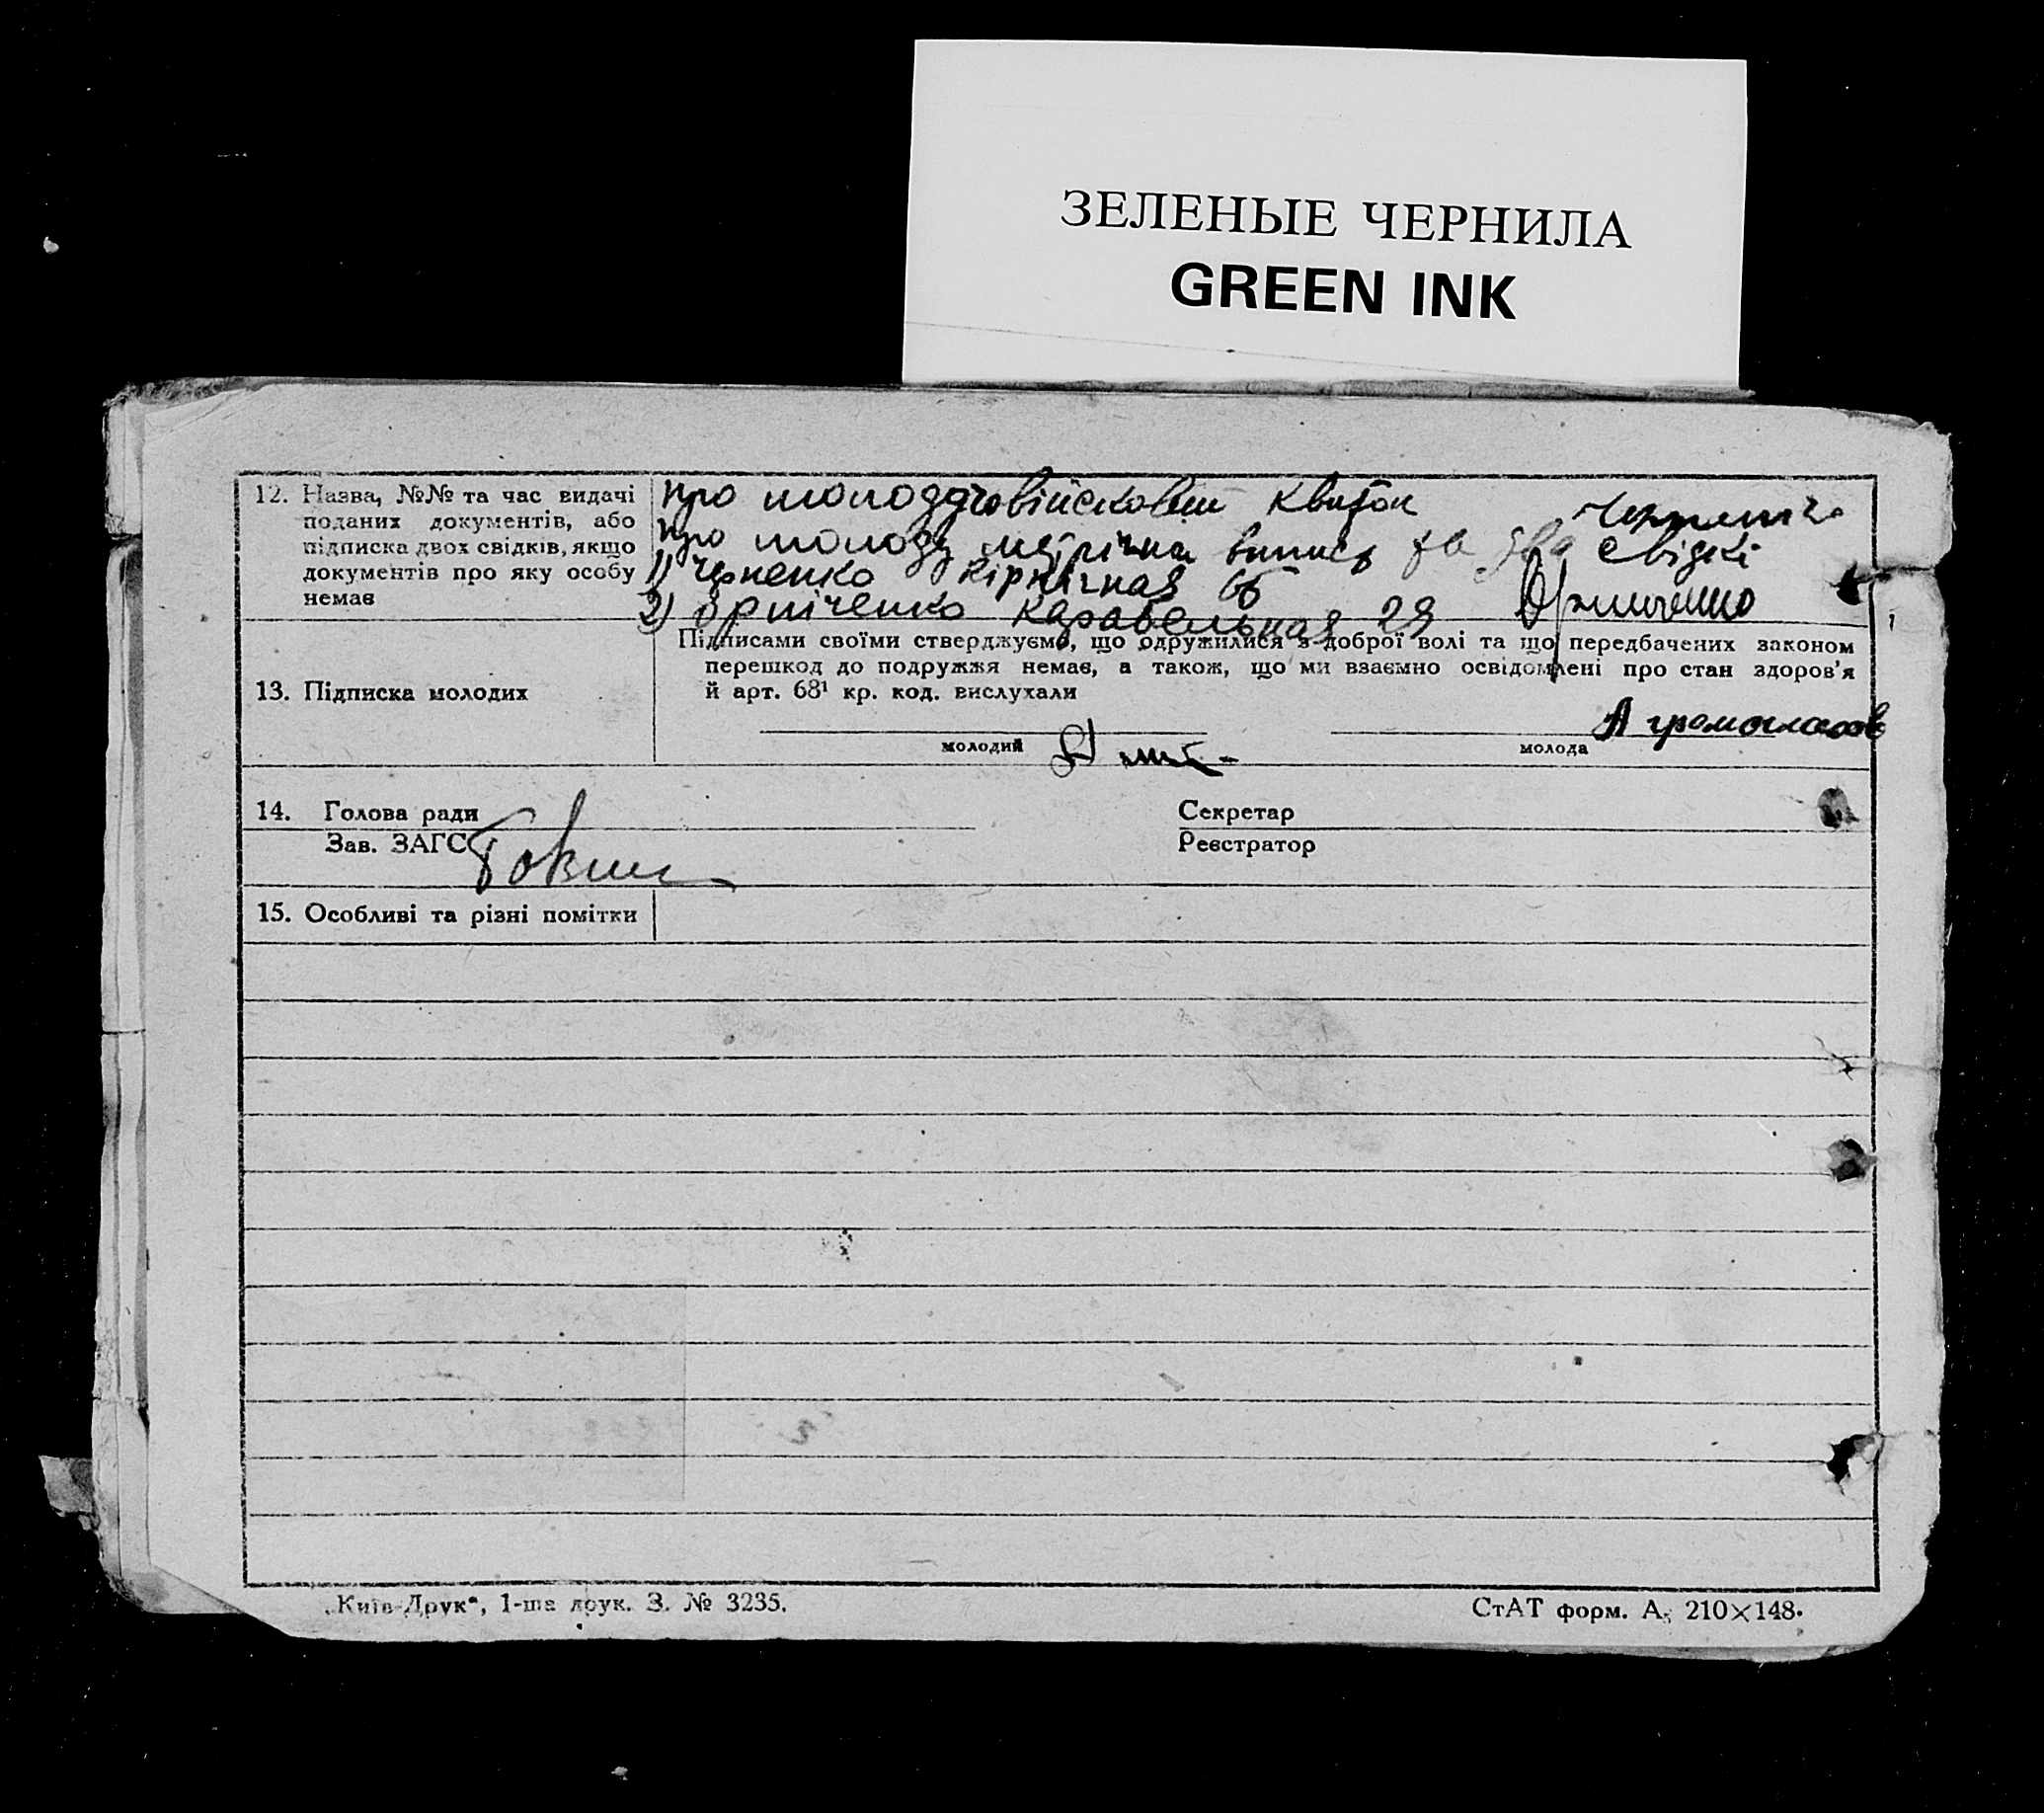 ЗЕЛЕНЫЕ ЧЕРНИЛА
GREEN INK
12. Назва, №№ та час видачі
поданих документів, або
підписка двох свідків, якщо
документів про яку особу
немає
про молодого військовий квиток
про молоду метрична випись та два свідкі
1) Черненко Кірпічная 65
2) Карабельная 29
Підписами своїми стверджуємо, що одружилися з доброї волі та що передбачених законом
перешкод до подружжя немає, а також, що ми взаємно освідомлені про стан здоров'я
й арт. 68¹ кр. код. вислухали
13. Підписка молодих
молодий
молода
14. Голова ради
Секретар
Зав. ЗАГС
Реєстратор
15. Особливі та різні помітки
„Київ-Друк“, 1-ша друк. З. № 3235.
СтАТ форм. А₅ 210×148.